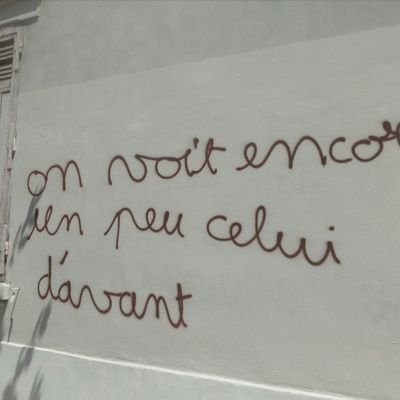 on voit encor
un peu celui
d'avant